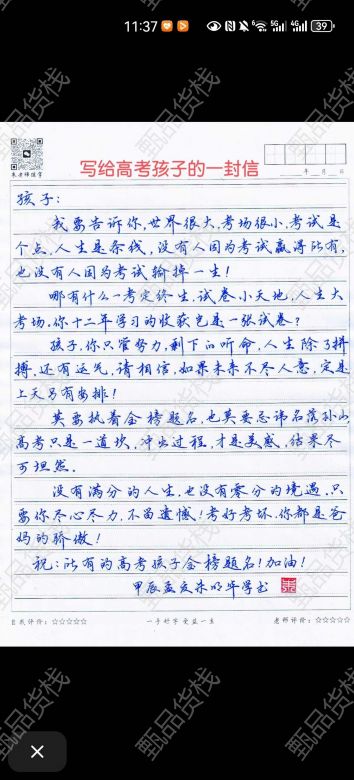 11:37
39
写给高考孩子的一封信
年 月 日
孩子:
我要告诉你,世界很大,考场很小,考试是
个点,人生是条线,没有人因为考试赢得所有,
也没有人因为考试输掉一生!
哪有什么一考定终生,试卷小天地,人生大
考场,你十二年学习的收获岂是一张试卷?
孩子,你只管努力,剩下的听命,人生除了拼
搏,还有运气,请相信,如果未来不尽人意,定是
上天另有安排!
莫要执着金榜题名,也莫要忌讳名落孙山,
高考只是一道坎,冲出过程,才是美感,结果尽
可坦然。
没有满分的人生,也没有零分的境遇,只
要你尽心尽力,不留遗憾!考好考坏,你都是爸
妈的骄傲!
祝:所有的高考孩子金榜题名!加油!
甲辰孟夏朱明华学书
自我评价:☆☆☆☆☆ 一手好字 受益一生 老师评价:☆☆☆☆☆
甄品货栈